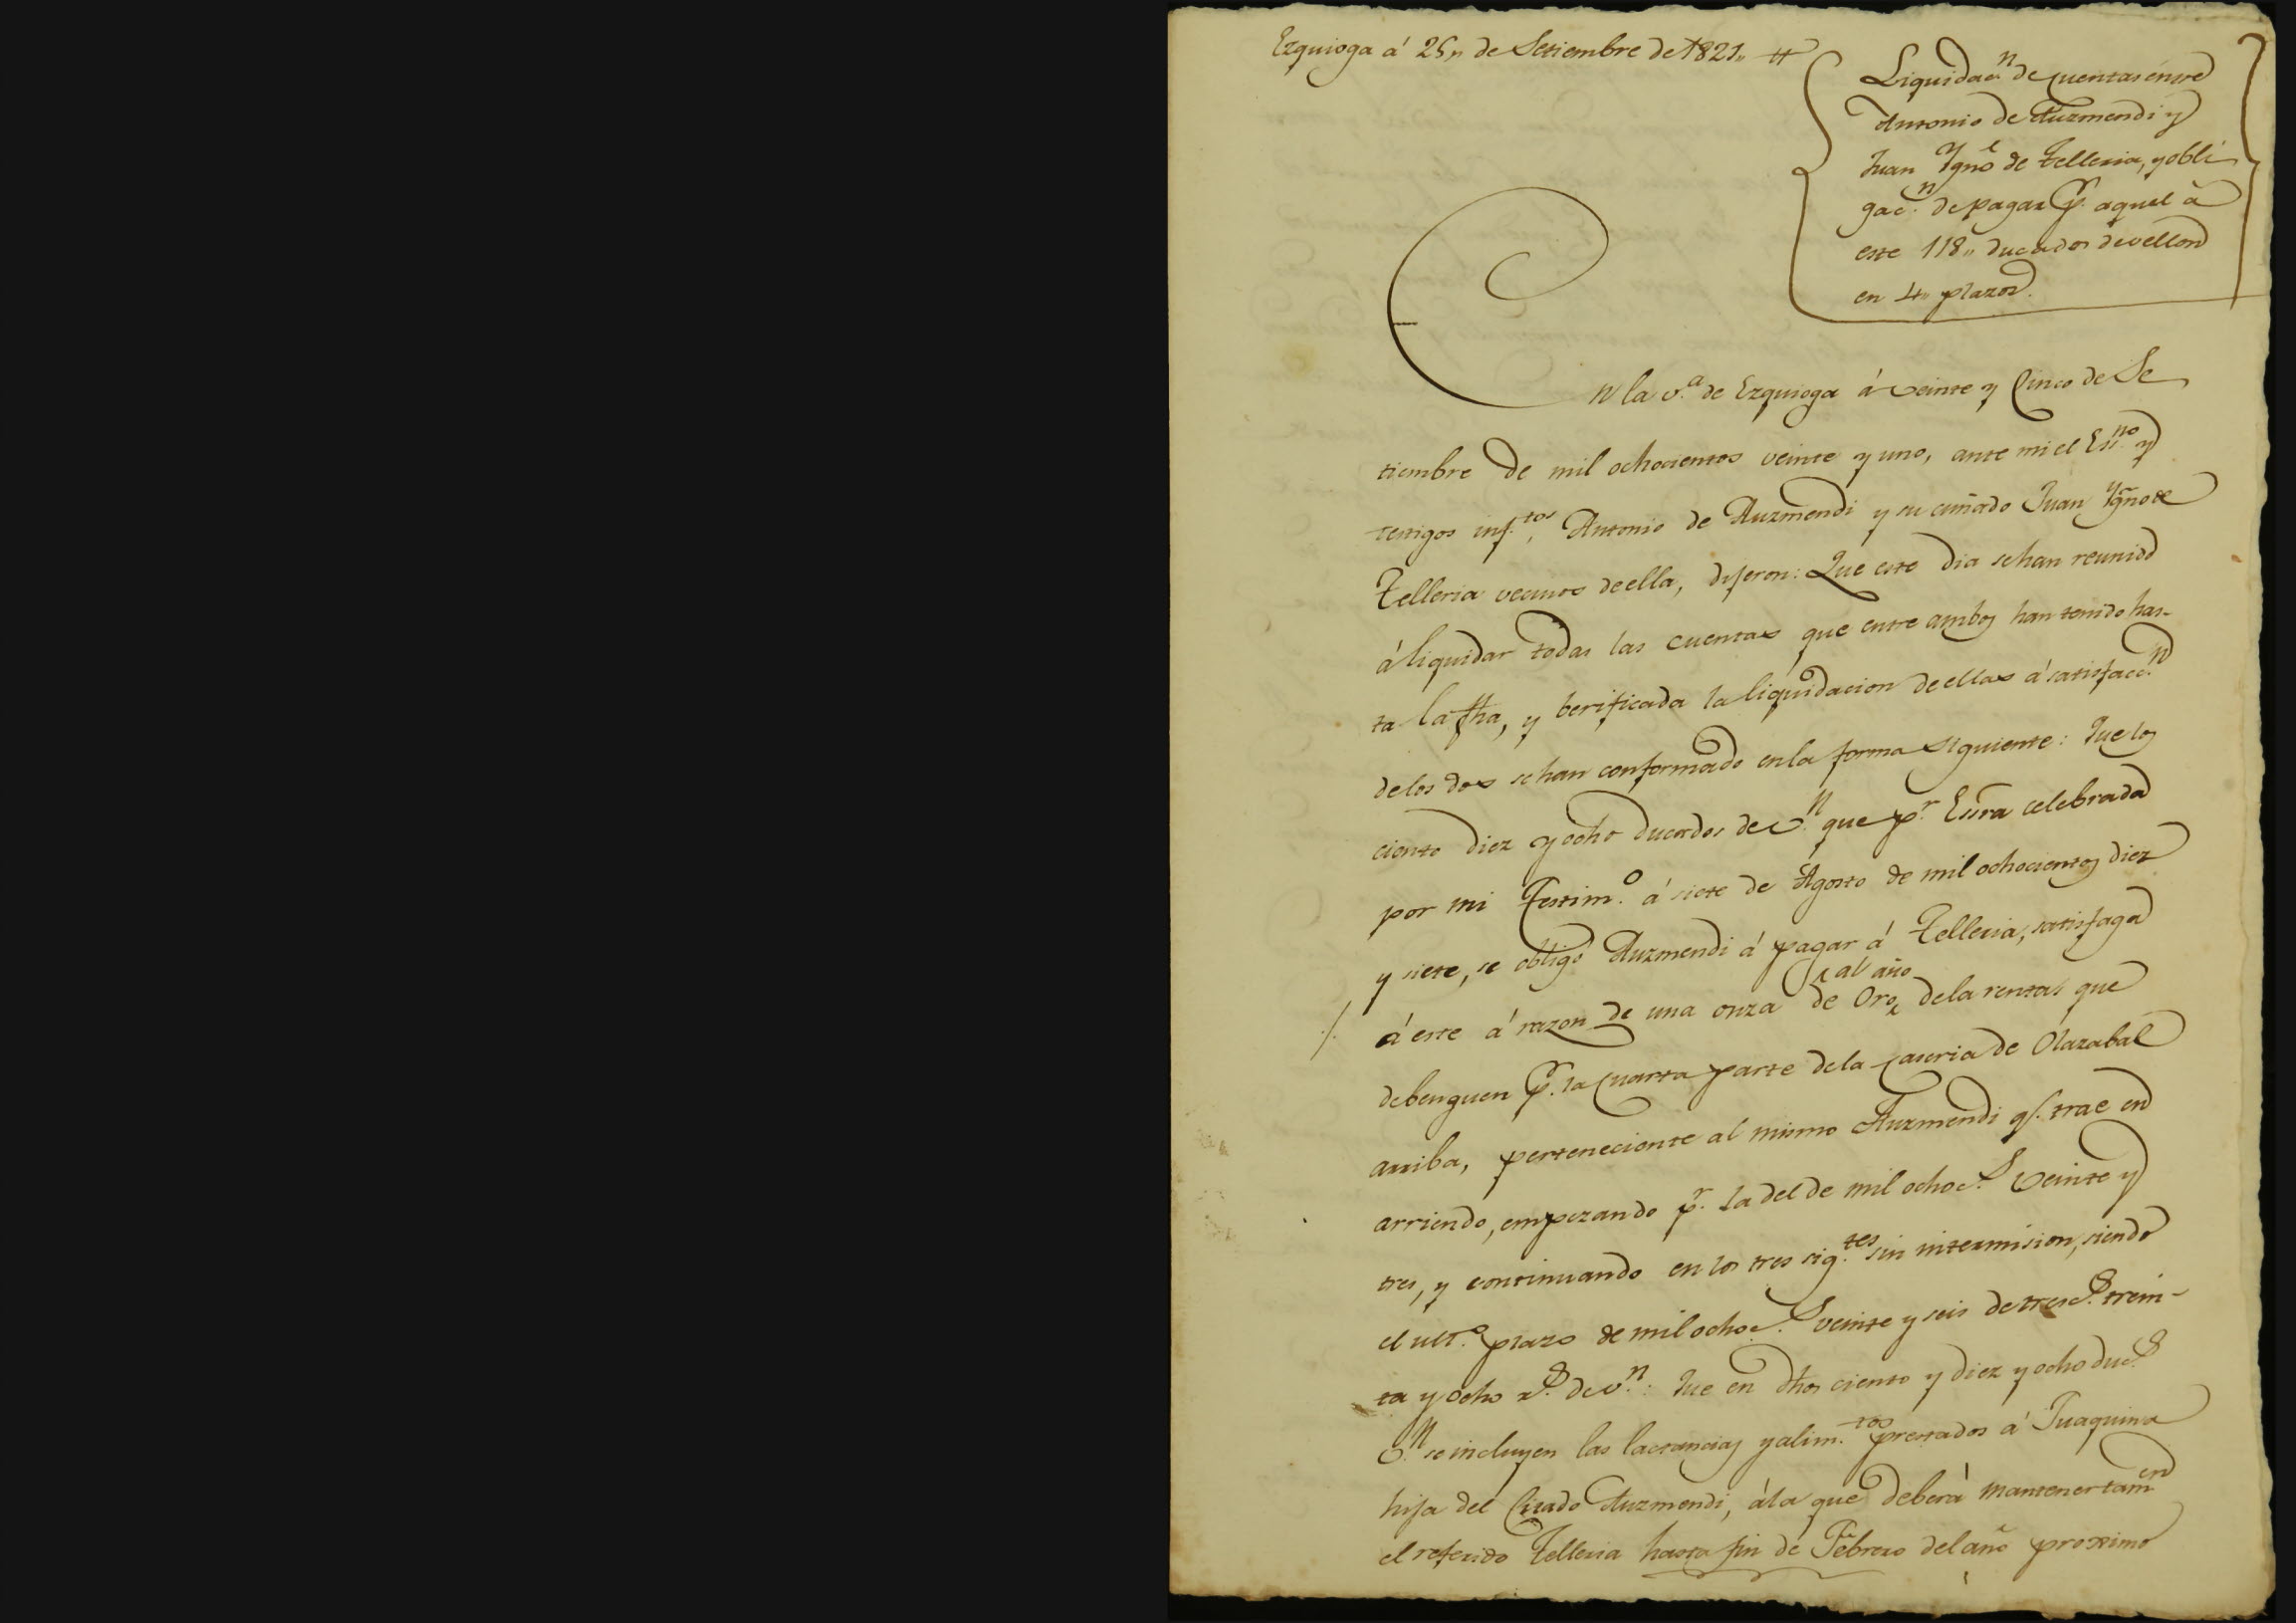 Ezquioga á 25,, de Setiembre de 1821,,
Liquidac.n de cuentas entre
Antonio de Auzmendi y
Juan Ygno. de Telleria, y obli
gac.n de pagar p.r aquel á
este 118,, ducados de vellon
en 4,, plazos.
En la v.a de Ezquioga á veinte y Cinco de Se
tiembre de mil ochocientos veinte y uno, ante mi el Ess.no y
testigos inf.tos, Antonio de Auzmendi y su cuñado Juan Ygno de
Telleria vecinos de ella, dijeron: Que este dia se han reunido
á liquidar todas las cuentas que entre ambos han tenido has-
ta la fha, y berificada la liquidacion de ellas á satisfacc.n
de los dos se han conformado en la forma siguiente: Que los
ciento diez y ocho ducados de v.n que p.r Essra celebrada
por mi Testim.o á siete de Agosto de mil ochocientos diez
y siete, se obligó Auzmendi á pagar á Telleria, satisfaga
al año
á este á razon de una onza de Oro, de la rentas que
debenguen p.r la Cuarta parte de la Caseria de Olazabal
arriba, perteneciente al mismo Auzmendi q.e trae en
arriendo, empezando p.r la del de mil ochoc.s veinte y
tres, y continuando en los tres sig.tes sin intermision, siendo
el ult.o plazo de mil ochoc.s veinte y seis de tresc.s trein-
ta y ocho r.s de v.n: Que en dhos ciento y diez y ocho duc.s
v.n se incluyen las lactancias y alim.tos prestados á Juaquina
hija del Citado Auzmendi, á la que deberá mantener tamen
el referido Telleria hasta fin de Febrero del año proximo